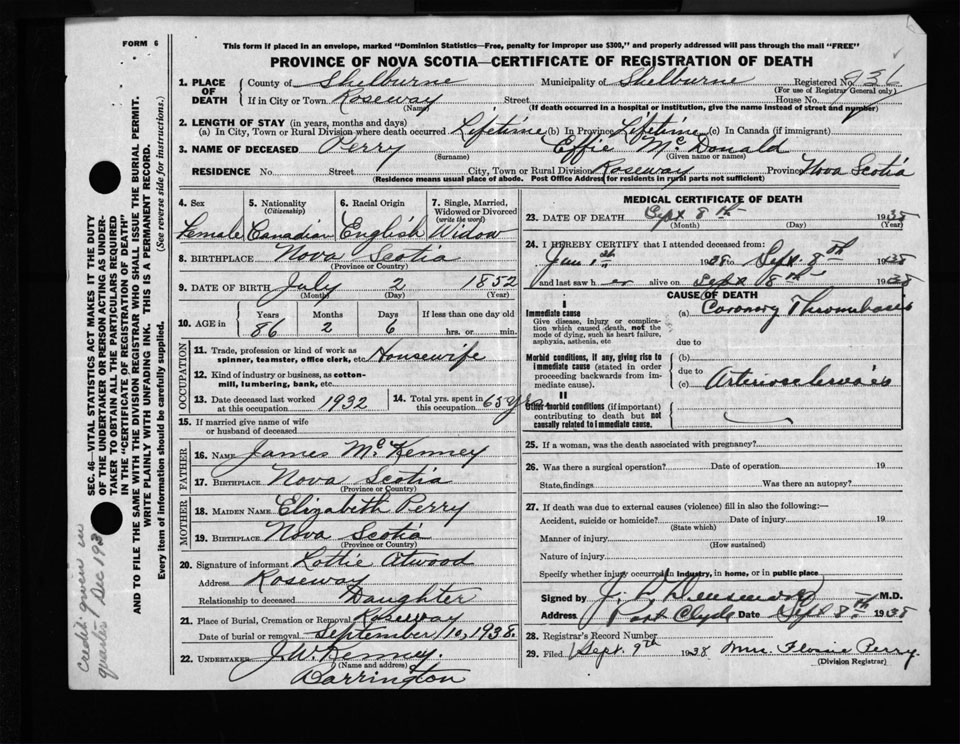 FORM 6
This form if placed in an envelope, marked "Dominion Statistics—Free, penalty for improper use $300," and properly addressed will pass through the mail "FREE"
PROVINCE OF NOVA SCOTIA—CERTIFICATE OF REGISTRATION OF DEATH
1. PLACE OF DEATH
County of Shelburne Municipality of Shelburne Registered No. 936
(For use of Registrar General only)
If in City or Town Roseway Street House No.
(Name) (If death occurred in a hospital or institution, give the name instead of street and number)
2. LENGTH OF STAY (in years, months and days)
(a) In City, Town or Rural Division where death occurred Lifetime (b) In Province Lifetime (c) In Canada (if immigrant)
3. NAME OF DECEASED Perry Effie McDonald
(Surname) (Given name or names)
RESIDENCE No. Street City, Town or Rural Division Roseway Province Nova Scotia
(Residence means usual place of abode. Post Office Address for residents in rural parts not sufficient)
4. Sex
Female
5. Nationality
(Citizenship)
Canadian
6. Racial Origin
English
7. Single, Married, Widowed or Divorced
(write the word)
Widow
8. BIRTHPLACE Nova Scotia
(Province or Country)
9. DATE OF BIRTH July 2 1852
(Month) (Day) (Year)
10. AGE in Years Months Days If less than one day old
86 2 6 hrs. or min.
OCCUPATION
11. Trade, profession or kind of work as spinner, teamster, office clerk, etc. Housewife
12. Kind of industry or business, as cotton-mill, lumbering, bank, etc.
13. Date deceased last worked at this occupation 1932
14. Total yrs. spent in this occupation 65 yrs
15. If married give name of wife or husband of deceased
FATHER
16. NAME James McKenney
17. BIRTHPLACE Nova Scotia
(Province or Country)
MOTHER
18. MAIDEN NAME Elizabeth Perry
19. BIRTHPLACE Nova Scotia
(Province or Country)
20. Signature of informant Lottie Atwood
Address Roseway
Relationship to deceased Daughter
21. Place of Burial, Cremation or Removal Roseway
Date of burial or removal September 10, 1938.
22. UNDERTAKER J. W. Kenney.
(Name and address)
Barrington
MEDICAL CERTIFICATE OF DEATH
23. DATE OF DEATH Sept 8th 1938
(Month) (Day) (Year)
24. I HEREBY CERTIFY that I attended deceased from:
Jan 1st 1938 to Sept. 8th 1938
and last saw h er alive on Sept 8th 1938
CAUSE OF DEATH
I
Immediate cause
Give disease, injury or complication which caused death, not the mode of dying, such as heart failure, asphyxia, asthenia, etc
(a) Coronary Thrombosis
due to
Morbid conditions, if any, giving rise to immediate cause (stated in order proceeding backwards from immediate cause).
(b)
due to
(c) Arteriosclerosis
II
Other morbid conditions (if important) contributing to death but not causally related to immediate cause.
25. If a woman, was the death associated with pregnancy?
26. Was there a surgical operation? Date of operation 19
State findings Was there an autopsy?
27. If death was due to external causes (violence) fill in also the following:—
Accident, suicide or homicide? Date of injury 19
(State which)
Manner of injury
(How sustained)
Nature of injury
Specify whether injury occurred in industry, in home, or in public place
Signed by M.D.
Address Port Clyde Date Sept 8th 1938
28. Registrar's Record Number
29. Filed Sept. 9th 1938 Mrs. Flossie Perry.
(Division Registrar)
SEC. 46—VITAL STATISTICS ACT MAKES IT THE DUTY
OF THE UNDERTAKER OR PERSON ACTING AS UNDER-
TAKER TO OBTAIN ALL THE PARTICULARS REQUIRED
IN THE "CERTIFICATE OF REGISTRATION OF DEATH"
AND TO FILE THE SAME WITH THE DIVISION REGISTRAR WHO SHALL ISSUE THE BURIAL PERMIT.
WRITE PLAINLY WITH UNFADING INK. THIS IS A PERMANENT RECORD.
Every item of information should be carefully supplied. (See reverse side for instructions.)
Credit given in
quarter Dec 193